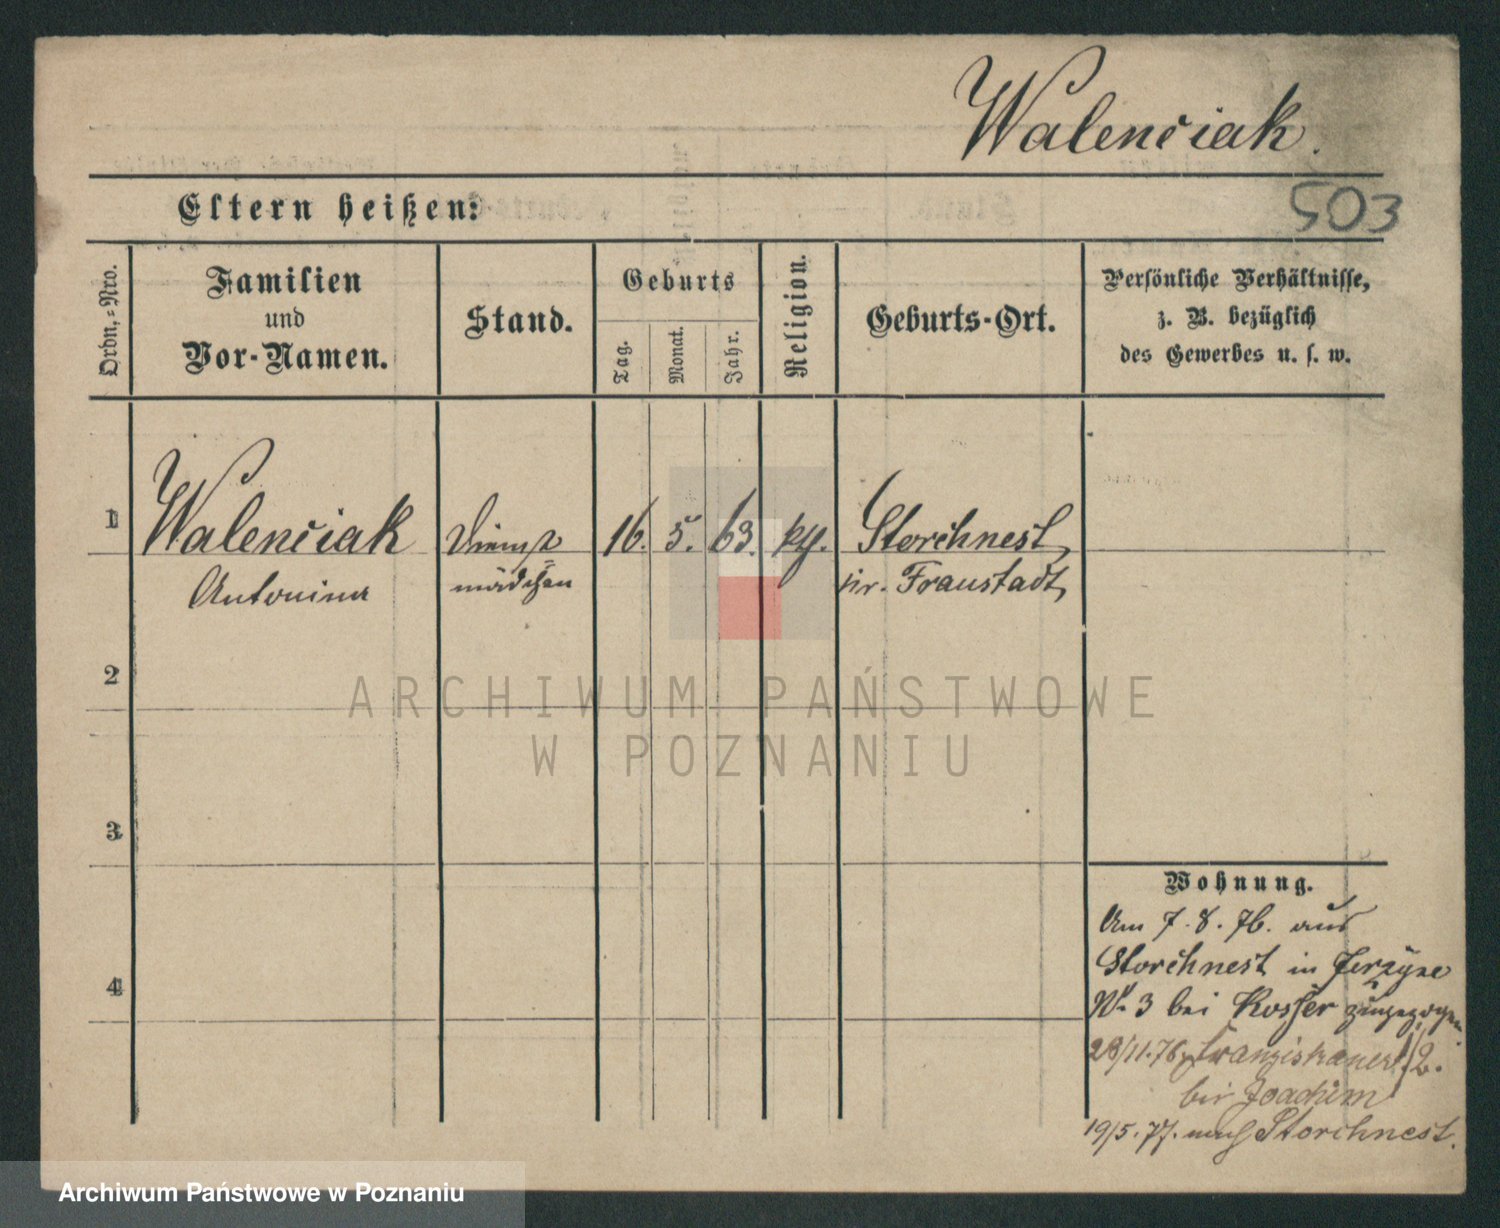 Walenciak.
503
Eltern heißen:
Ordn.-Nro.
Familien
und
Vor-Namen.
Stand.
Geburts
Tag.
Monat.
Jahr.
Religion.
Geburts-Ort.
Persönliche Verhältnisse,
z. B. bezüglich
des Gewerbes u. s. w.
1
Walenciak
Antonina
Dienst=
mädchen
16.
5.
63.
Storchnest,
Kr. Fraustadt,
2
3
4
Wohnung.
Am 7.8.76. aus
Storchnest in Jerzyce
No 3 bei Kosser zugezogen
28/11.76. Franziskanerstr. 2.
bei Joachim
19/5.77. nach Storchnest.
ARCHIWUM PAŃSTWOWE
W POZNANIU
Archiwum Państwowe w Poznaniu